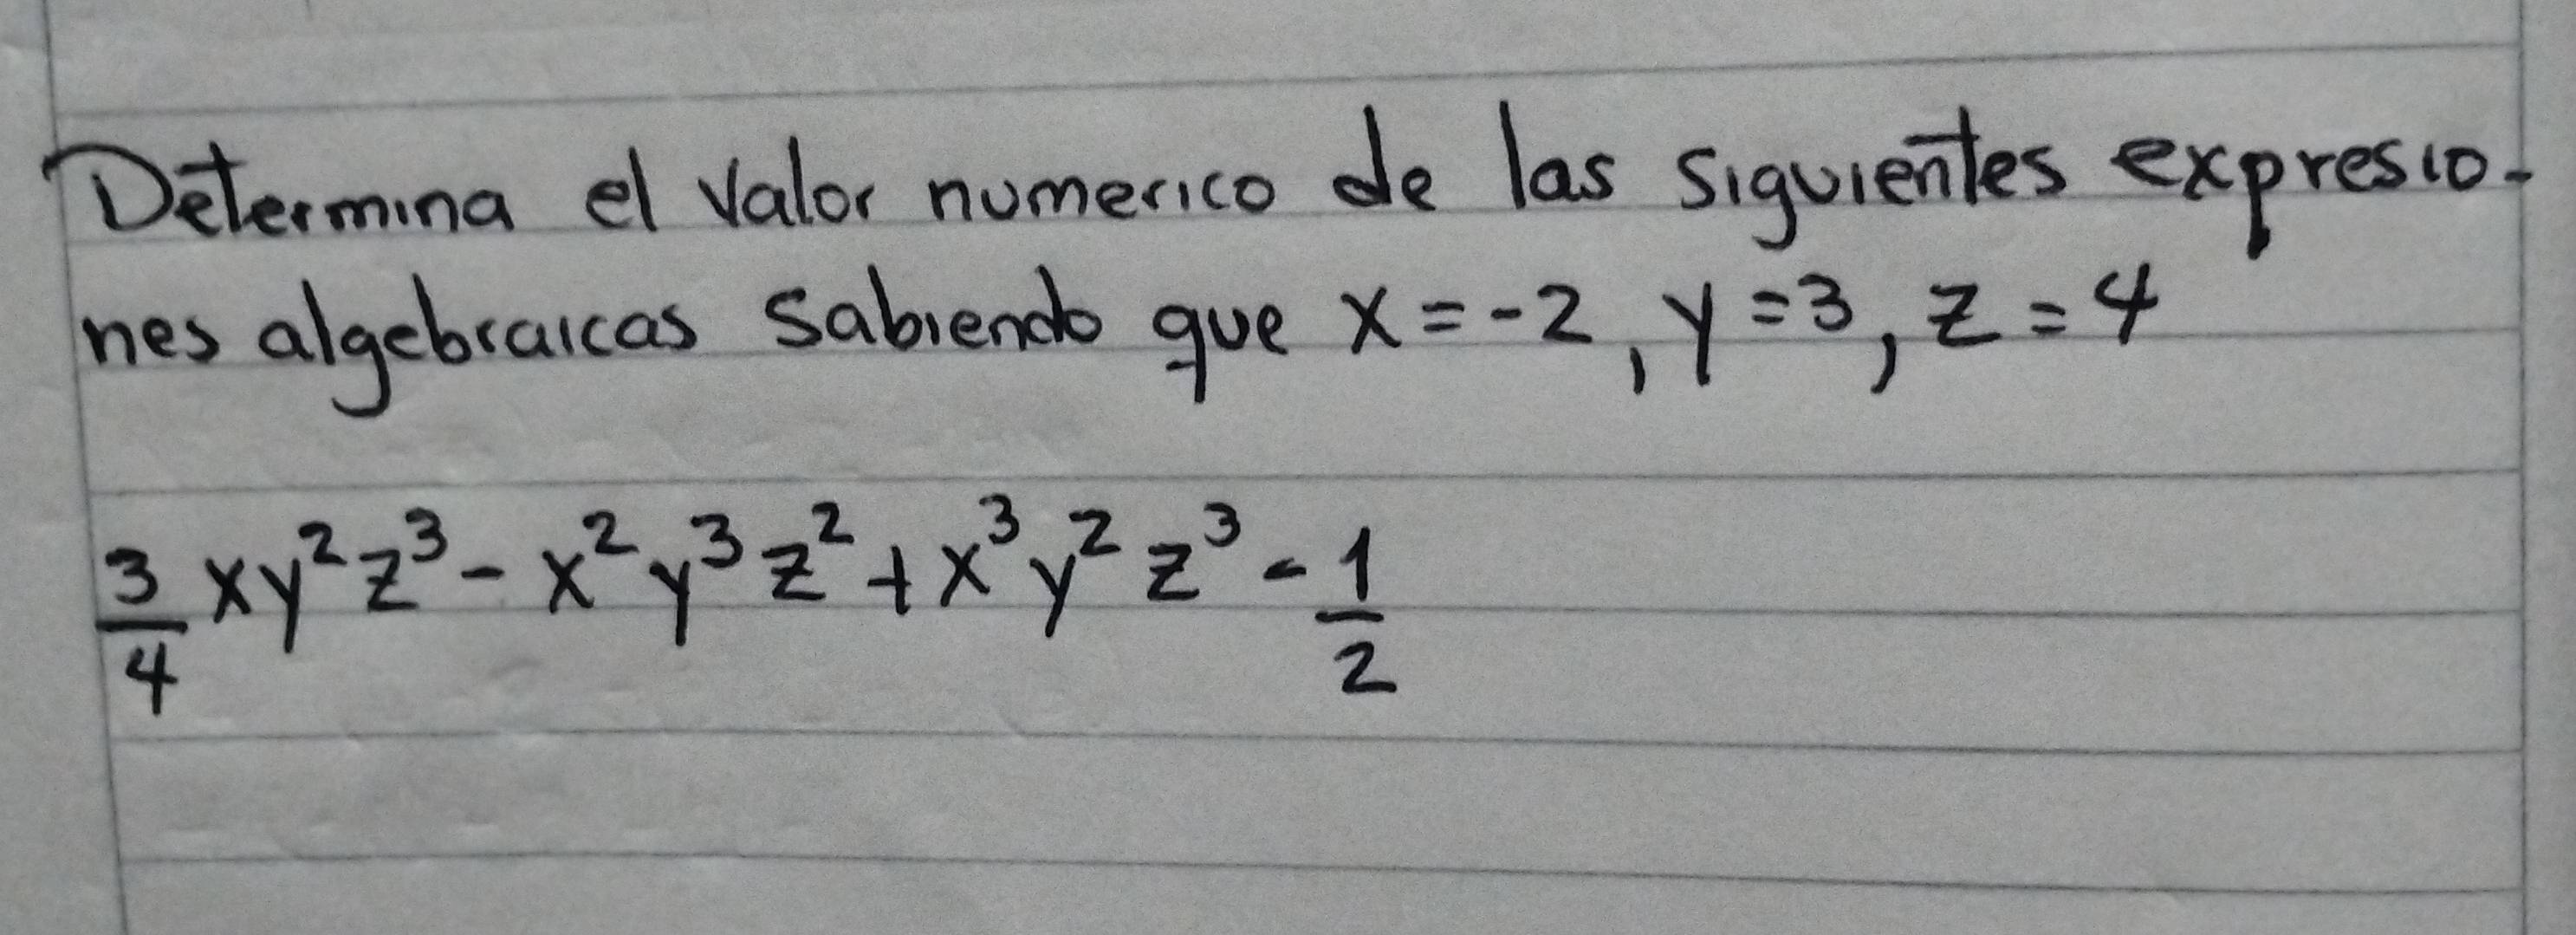 Determina el valor numerico de las siguientes expresio-
nes algebraicas sabiendo que x = -2, y = 3, z = 4
3/4 xy²z³ - x²y³z² + x³y²z³ - 1/2